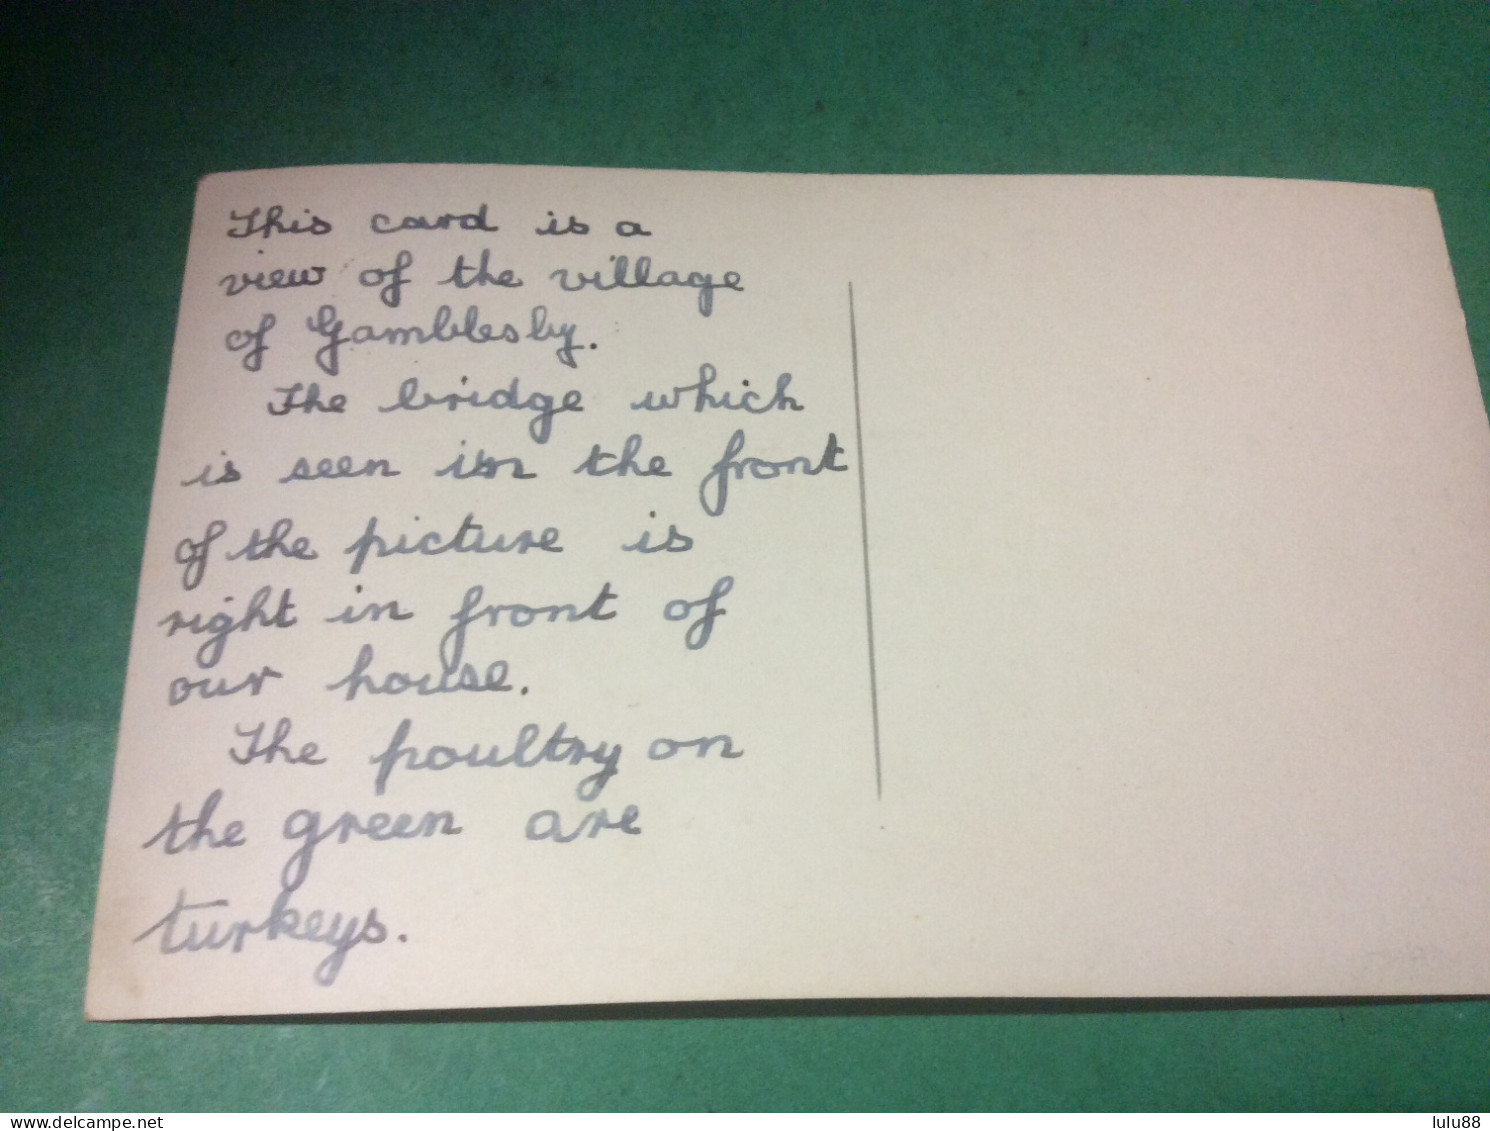 This card is a
view of the village
of Gamblesby.
The bridge which
is seen in the front
of the picture is
right in front of
our house.
The poultry on
the green are
turkeys.
delcampe.net
lulu88